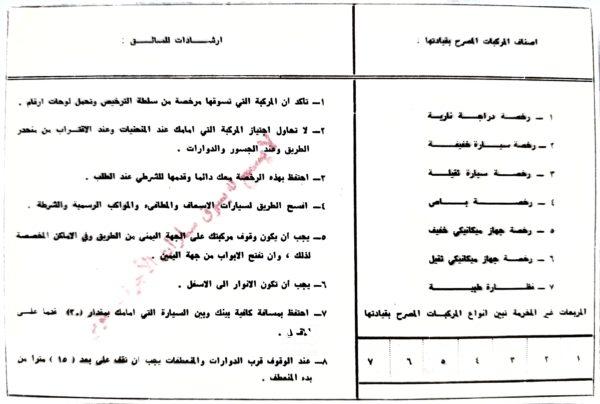 اصناف المركبات المصرح بقيادتها :
١ – رخصة دراجة نارية
٢ – رخصة سيارة خفيفة
٣ – رخصة سيارة ثقيلة
٤ – رخصة باص
٥ – رخصة جهاز ميكانيكي خفيف
٦ – رخصة جهاز ميكانيكي ثقيل
٧ – نظارة طبية
المربعات غير المخرمة تبين انواع المركبات المصرح بقيادتها
١ ٢ ٣ ٤ ٥ ٦ ٧
ارشادات للسائق :
١– تأكد أن المركبة التي تسوقها مرخصة من سلطة الترخيص وتحمل لوحات ارقام .
٢– لا تحاول اجتياز المركبة التي امامك عند المنحنيات وعند الاقتراب من منحدر
الطريق وعند الجسور والدوارات .
٣– احتفظ بهذه الرخصة معك دائما وقدمها للشرطي عند الطلب .
٤– افسح الطريق لسيارات الاسعاف والمطافىء والمواكب الرسمية والشرطة .
٥– يجب أن يكون وقوف مركبتك على الجهة اليمنى من الطريق وفي الاماكن المخصصة
لذلك ، وان تفتح الابواب من جهة اليمين .
٦– يجب أن تكون الانوار الى الاسفل .
٧– احتفظ بمسافة كافية بينك وبين السيارة التي امامك بمقدار (٣٠) قدما على
الاقل .
٨– عند الوقوف قرب الدوارات والمنعطفات يجب أن تقف على بعد (١٥) مترا من
بدء المنعطف .